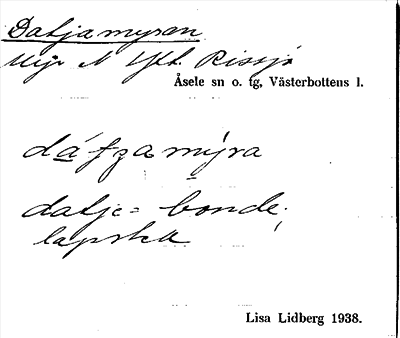 Datjamyran
Myr N Ytt. Rissjö
Åsele sn o. tg, Västerbottens l.
dátjamýra
datje = bonde;
lapska
Lisa Lidberg 1938.